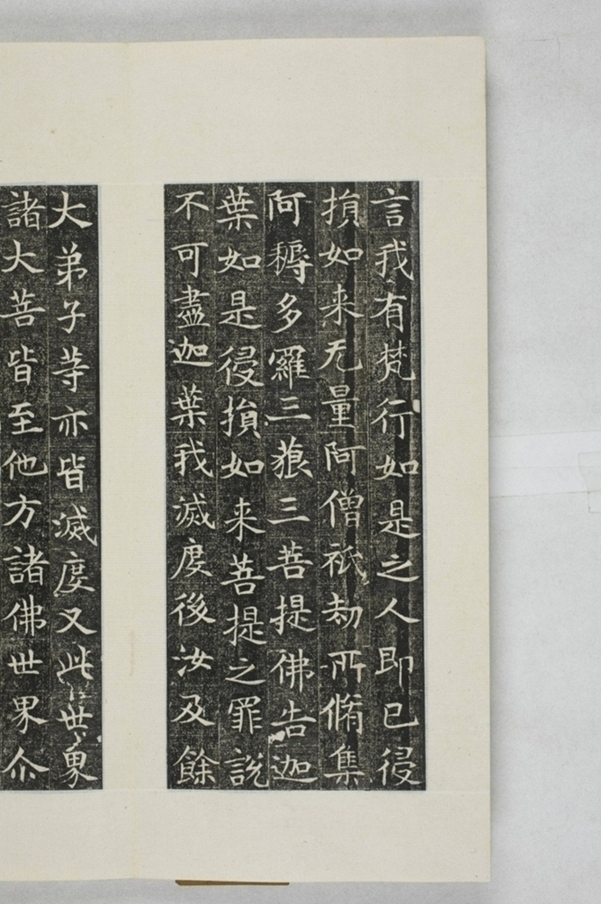 言我有梵行如是之人即已侵
損如来无量阿僧祇劫所脩集
阿耨多羅三藐三菩提佛告迦
葉如是侵損如来菩提之罪説
不可盡迦葉我滅度後汝及餘
大弟子等亦皆滅度又此世界
諸大菩皆至他方諸佛世界尒